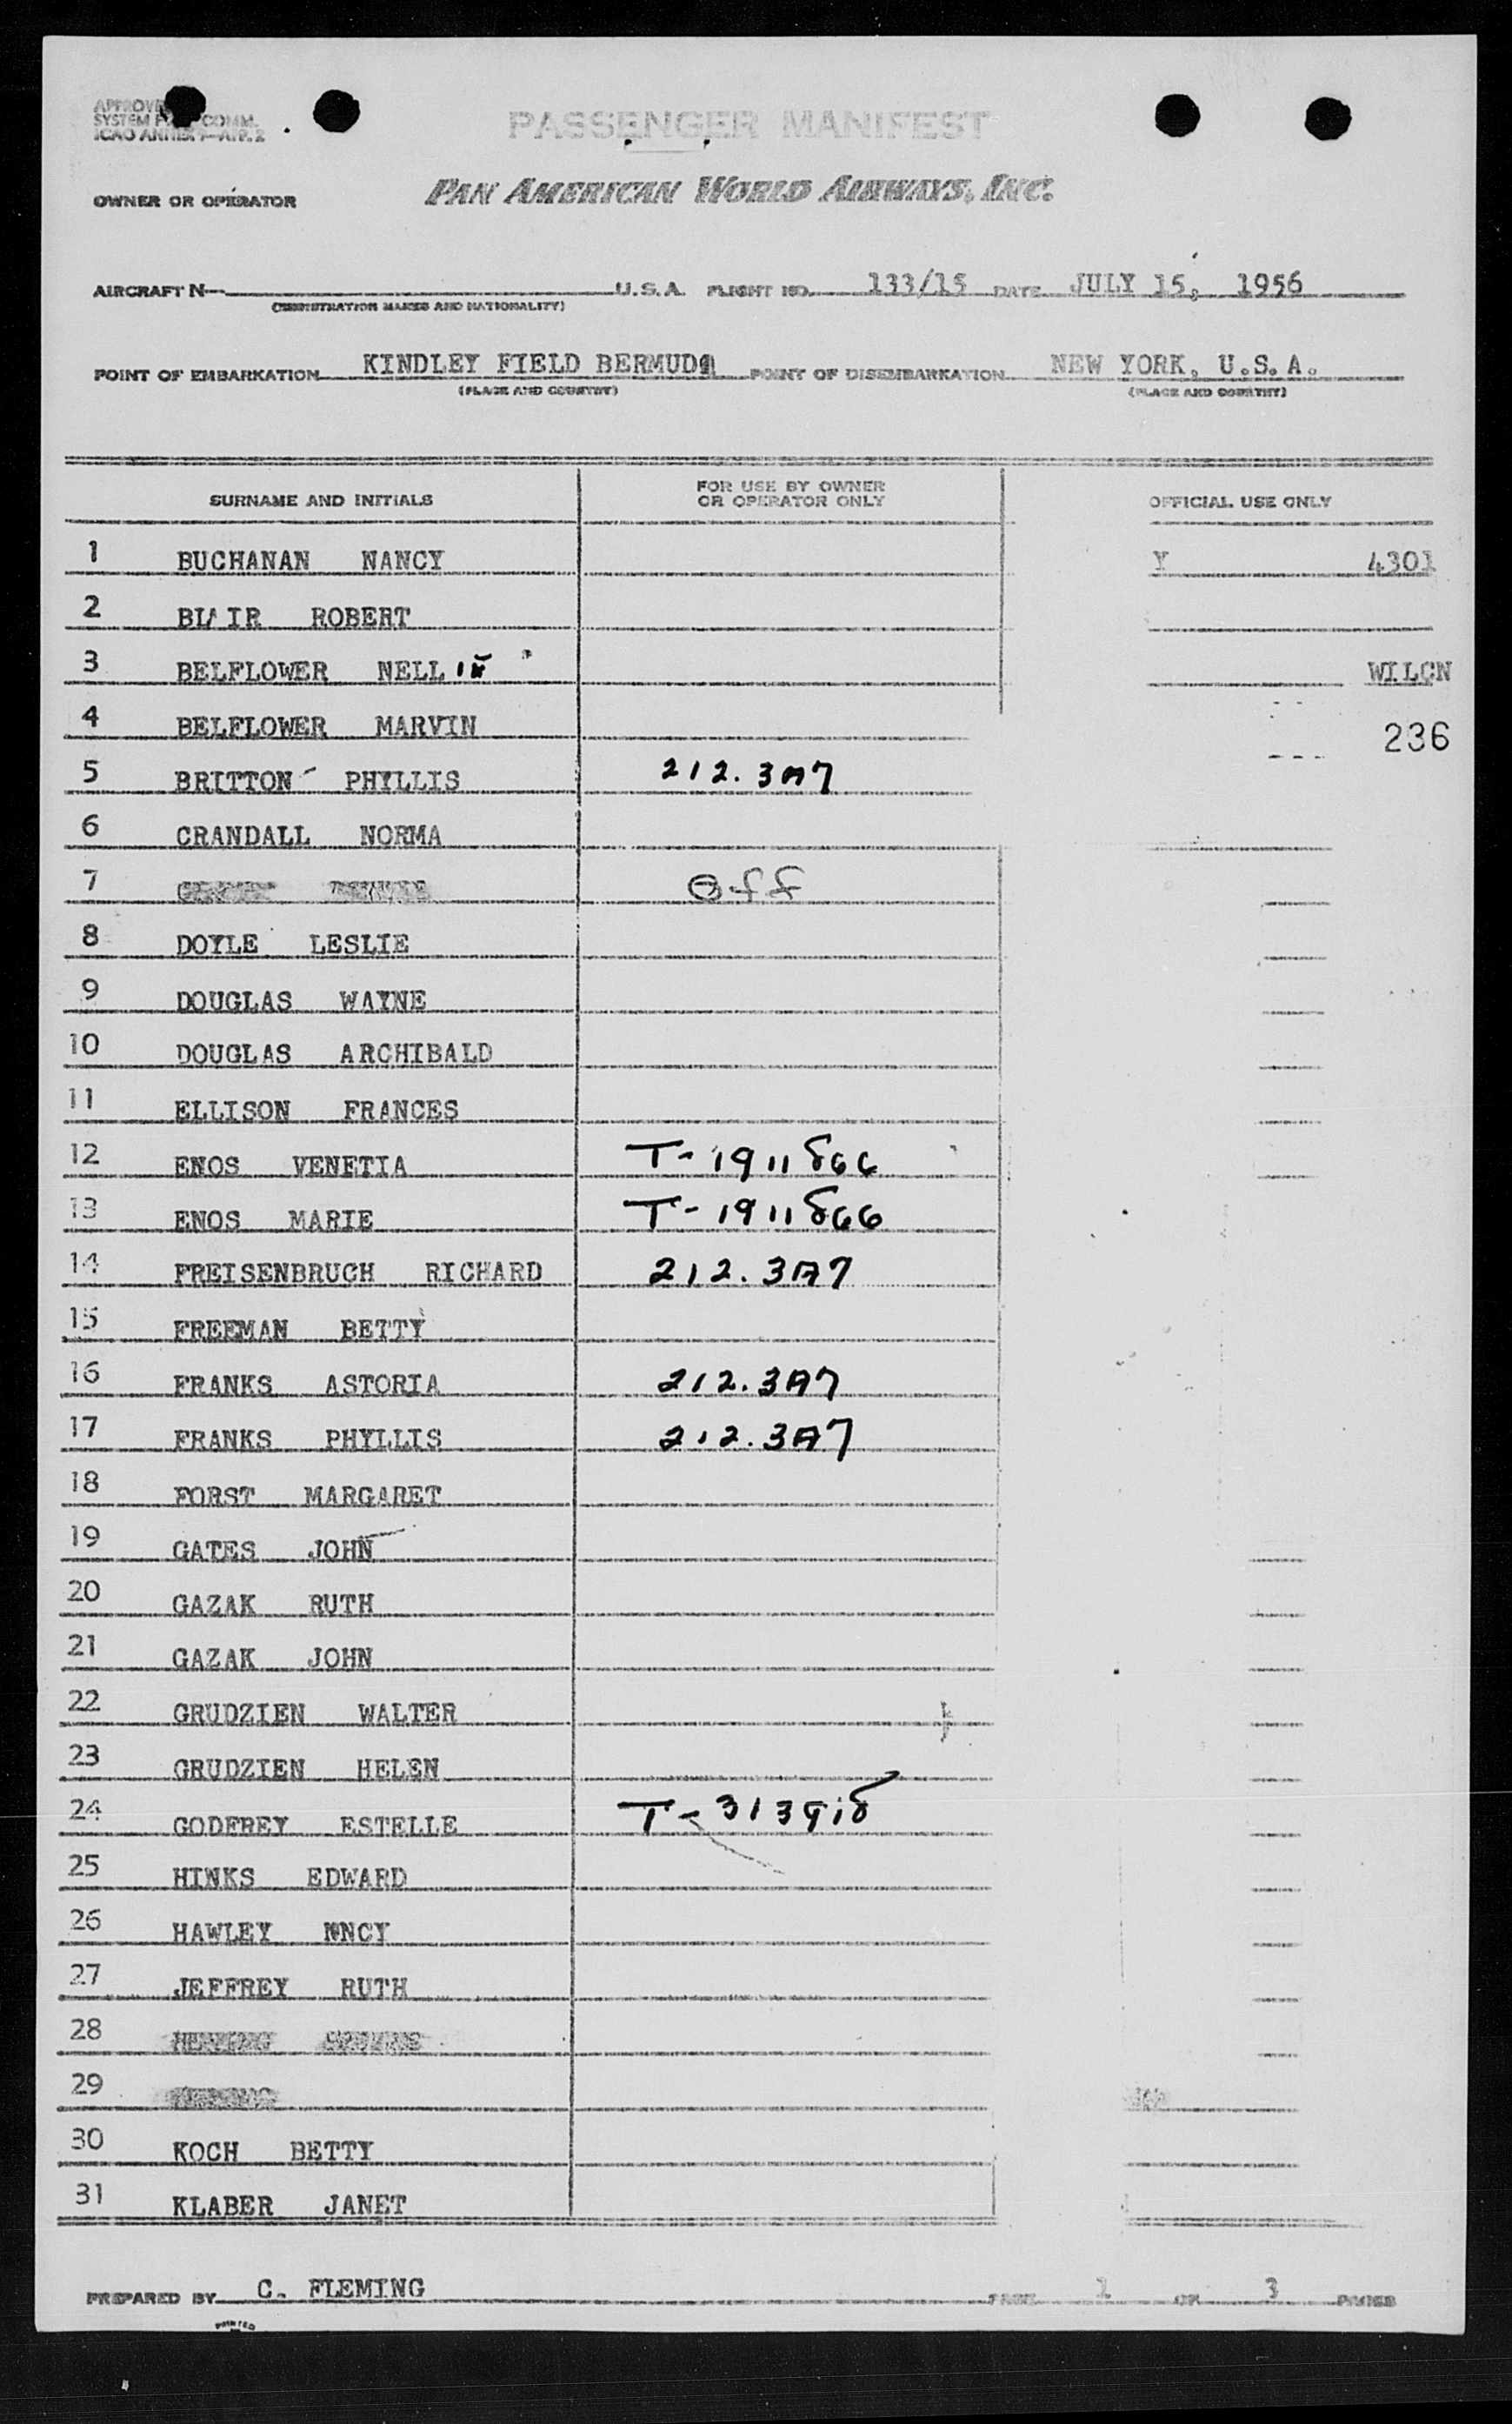 PASSENGER MANIFEST
OWNER OR OPERATOR PAN AMERICAN WORLD AIRWAYS, INC.
AIRCRAFT N U.S.A. FLIGHT NO. 133/15 DATE JULY 15, 1956
(REGISTRATION MARKS AND NATIONALITY)
POINT OF EMBARKATION KINDLEY FIELD BERMUDA POINT OF DISEMBARKATION NEW YORK, U.S.A.
(PLACE AND COUNTRY) (PLACE AND COUNTRY)
SURNAME AND INITIALS FOR USE BY OWNER OR OPERATOR ONLY OFFICIAL USE ONLY
1 BUCHANAN NANCY Y 4301
2 BLAIR ROBERT
3 BELFLOWER NELL WILCN
4 BELFLOWER MARVIN 236
5 BRITTON PHYLLIS 212.3A7
6 CRANDALL NORMA
7 Off
8 DOYLE LESLIE
9 DOUGLAS WAYNE
10 DOUGLAS ARCHIBALD
11 ELLISON FRANCES
12 ENOS VENETIA T-1911866
13 ENOS MARIE T-1911866
14 FREISENBRUCH RICHARD 212.3A7
15 FREEMAN BETTY
16 FRANKS ASTORIA 212.3A7
17 FRANKS PHYLLIS 212.3A7
18 FORST MARGARET
19 GATES JOHN
20 GAZAK RUTH
21 GAZAK JOHN
22 GRUDZIEN WALTER
23 GRUDZIEN HELEN
24 GODFREY ESTELLE T-313918
25 HINKS EDWARD
26 HAWLEY NNCY
27 JEFFREY RUTH
28
29
30 KOCH BETTY
31 KLABER JANET
PREPARED BY C. FLEMING PAGE 1 OF 3 PAGES
PRINTED